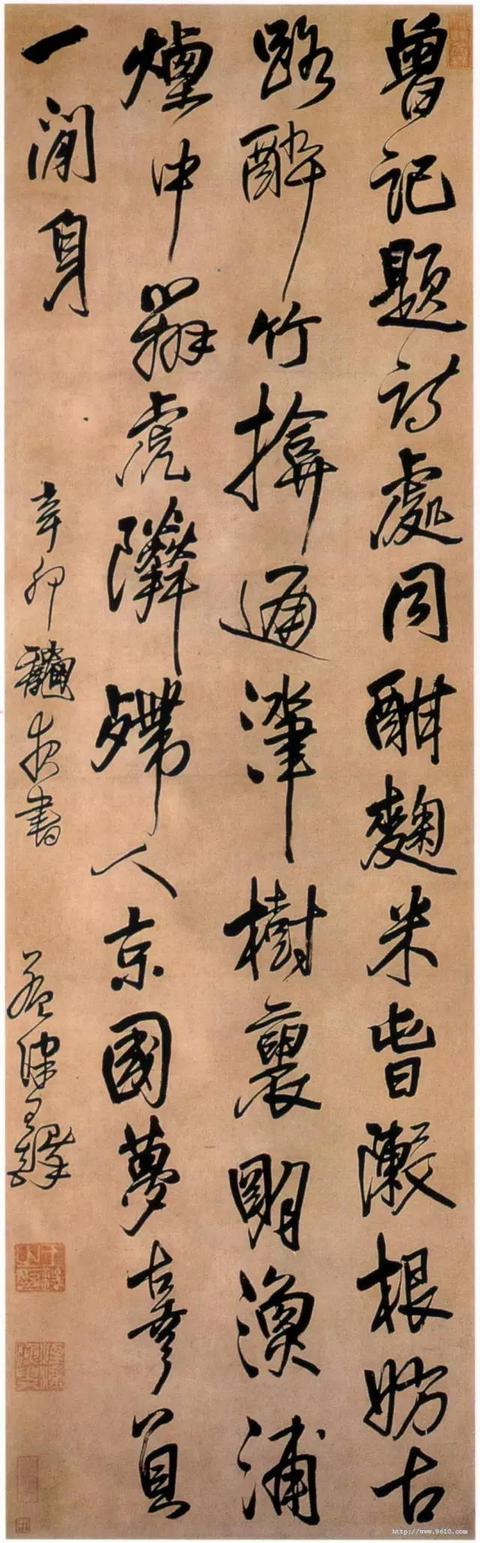 曾記題詩處同酣麴米旾漱根妨古
路醉竹揜通津樹裏明漁浦
煙中辨虎隣殢人京國夢辜負
一閒身
辛卯夜書 孟津王鐸
http://www.9610.com